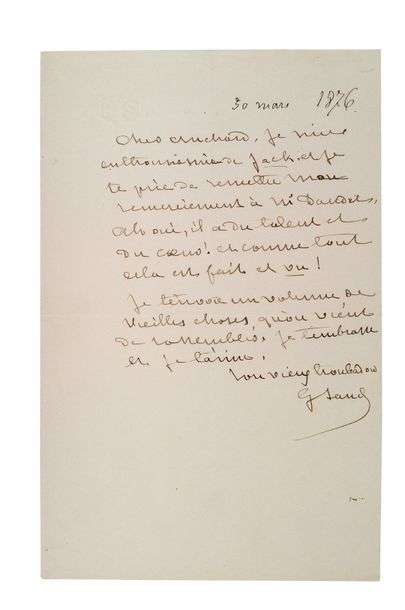 30 mars 1876.
Cher cruchard, je suis
enthousiasmée de Jack et je
te prie de remettre mon
remerciement à Mr Daudet,
Ah oui, il a du talent et
du cœur! et comme tout
cela est fait et vu!
Je t'envoie un volume de
vieilles choses qu'on vient
de rassembler, je t'embrasse
et je t'aime.
Ton vieux troubadour
G Sand